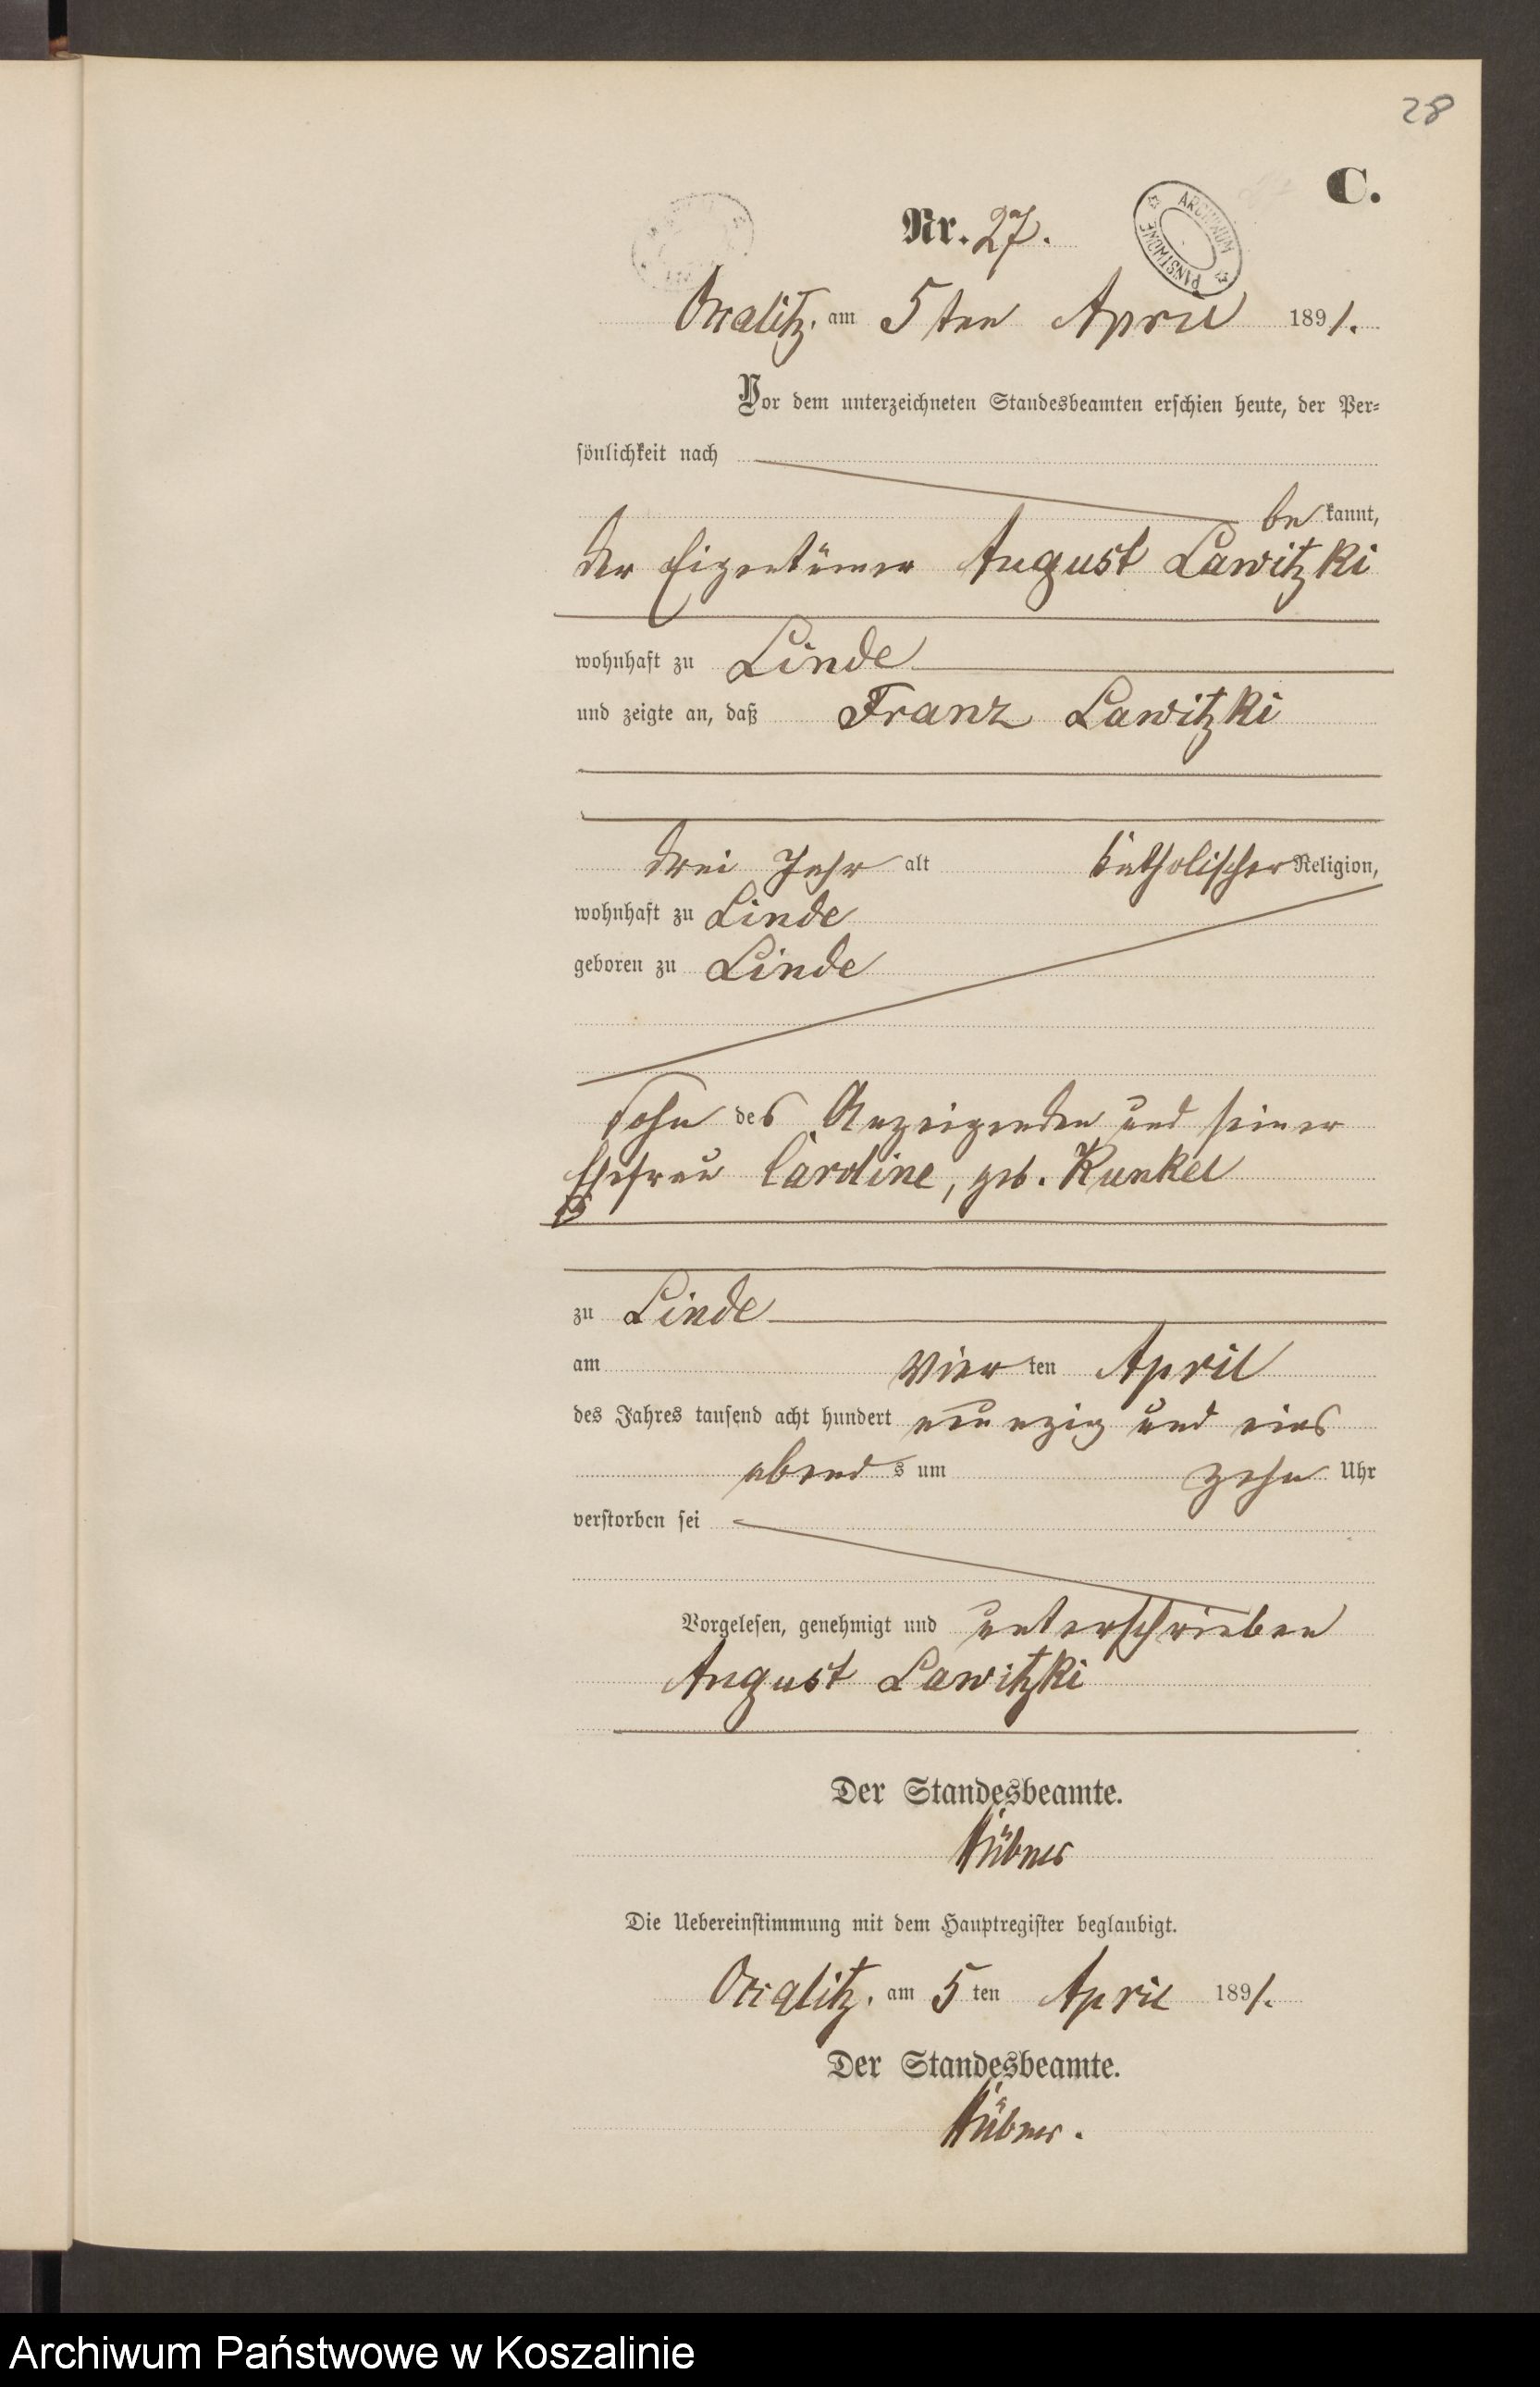 28
C.
Nr. 27.
ARCHIWUM PAŃSTWOWE
am 5ten April 1891.
Vor dem unterzeichneten Standesbeamten erschien heute, der Per-
sönlichkeit nach
be kannt,
der Eigentümer August Lawitzki
wohnhaft zu Linde
und zeigte an, daß Franz Lawitzki
drei Jahr alt katholischer Religion,
wohnhaft zu Linde
geboren zu Linde
Sohn des Anzeigenden und seiner
Ehefrau Caroline, geb. Kunkel
zu Linde
am vier ten April
des Jahres tausend acht hundert neunzig und eins
abend s um zehn Uhr
verstorben sei
Vorgelesen, genehmigt und unterschrieben
August Lawitzki
Der Standesbeamte.
Hübner
Die Uebereinstimmung mit dem Hauptregister beglaubigt.
am 5 ten April 1891.
Der Standesbeamte.
Hübner.
Archiwum Państwowe w Koszalinie